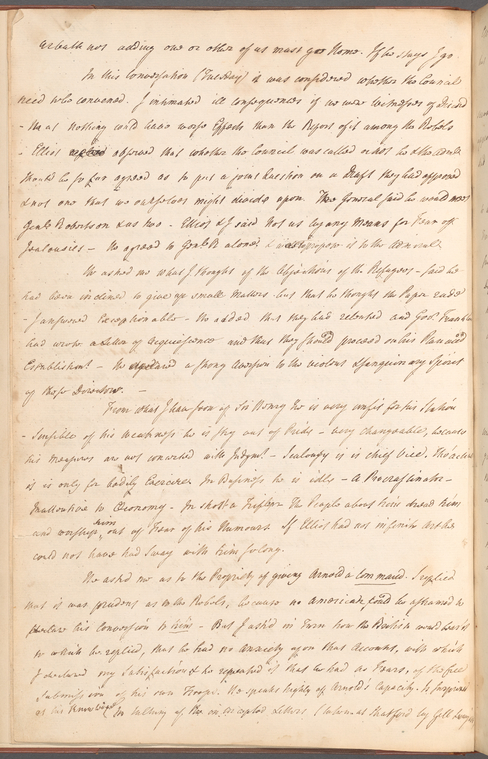 Arbuthnot adding one or other of us must go Home. If he stays I go
In this Conversation (Tuesday) it was considered whether the Council
need be convened. I intimated ill consequences if we were Witnesses of discord
- that nothing could have worse Effects than the Report of it among the Rebels
Elliot observed that whether the Council was called or not he & the
should be so far agreed as to put a joint Question on a Draft they had approved
& not one that we ourselves might decide upon. The General said he would
Genl Robertson & us two - Elliot & I said not us by any Means for Fear of
Jealousies - He agreed to Genl R alone & is to the Admiral
He asked me what I thought of the Objections of the Refugees - said he
had been inclined to give up small Matters but that he thought the Paper rude
- I answered Exceptionable - He added that they had relented and Govr Franklin
had wrote a Letter of Acquiescence and that they should proceed on his Plan and
Establishmt - He declared a strong Aversion to the violent & sanguinary Spirit
of those Directors. -
From what I have seen of Sir Henry he is very unfit for his Station
- Sensible of his Weakness he is shy out of Pride - very changeable, because
his Measures are not concerted with Judgmt - Jealousy is his chief Vice.
it is only for bodily Exercises In Business he is idle - A Procrastinator -
Inattentive to Oeconomy - In short a Trifler The People about him dread him
and worship him out of Fear of his Humours If Elliot had not infinite Art he
could not have had Sway with him so long.
He asked me as to the Propriety of giving Arnold a Command. I replied
that it was prudent as to the Rebels, because no American could be ashamed to
declare his Conversion to him - But I ask'd in Turn how the British would bear it
to which he replied, that he had no Anxiety upon that Account, with which
I declared my Satisfaction & he repeated it that he had no Fears, of the free
Submission of his own Troops. He speaks highly of Arnold's Capacity. Is surprized
at his Knowledge In talking of the intercepted Letters (taken at Hartford by